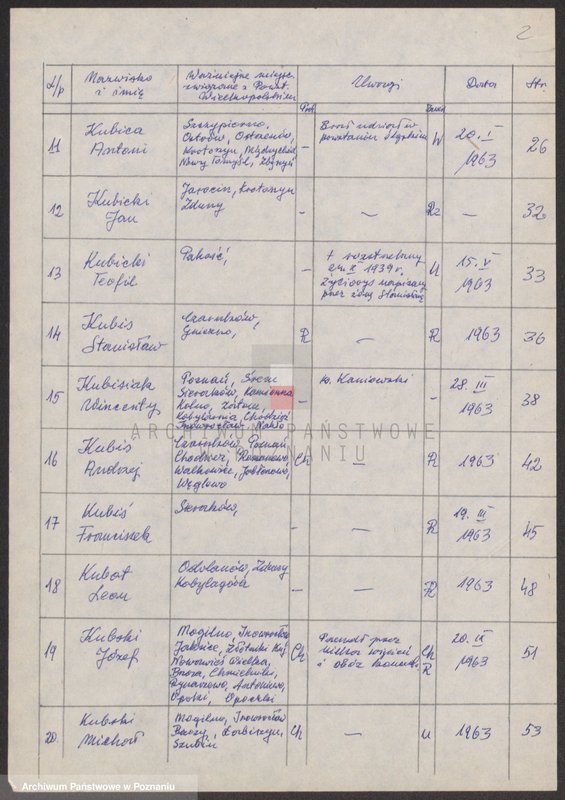 2
L/p Nazwisko i imię Ważniejsze miejsc. związane z Powst. Wielkopolskim Uwagi Data Str.
11 Kubica Antoni
Szczypiorno,
Ostrów, Ostrzeszów,
Krotoszyn, Międzychód
Nowy Tomyśl, Zbąszyń
–
Brał udział w
powstaniu Śląskim
W
20. I
1963
26
12 Kubicki Jan
Jarocin, Krotoszyn
Zduny
–
–
Rz
–
32
13 Kubicki Teofil
Pakość,
–
+ rozstrzelany
1939 r.
Życiorys napisany
przez żonę Stanisławę
U
15. V
1963
33
14 Kubiś Stanisław
Czarnków,
Gniezno,
R
–
R
1963
36
15 Kubisiak Wincenty
Poznań, Śrem
Sieraków, Kamionna
Kolno,
Kobylarnia, Chodzież
Inowrocław, Nakło
–
w. Kaniowski
–
28. III
1963
38
16 Kubiś Andrzej
Czarnków, Poznań,
Chodzież, Romanowo
Walkowice, Jabłonowo,
Węglewo
Ch
–
R
1963
42
17 Kubiś Franciszek
Sieraków,
–
–
R
19. III
1963
45
18 Kubot Leon
Odolanów, Zduny
Kobylagóra
–
–
R
1963
48
19 Kubski Józef
Mogilno, Inowrocław
Jaksice, Złotniki Kuj
Nowawieś Wielka,
Brzoza, Chmielniki,
Rynarzewo, Antoniewo,
Ch
Przeszedł przez
kilka więzień
i obóz koncent.
Ch
R
20. IX
1963
51
20. Kubski Michał
Mogilno, Inowrocław
Barcin, Łabiszyn,
Szubin
Ch
–
U
1963
53
ARCHIWUM PAŃSTWOWE
W POZNANIU
Archiwum Państwowe w Poznaniu